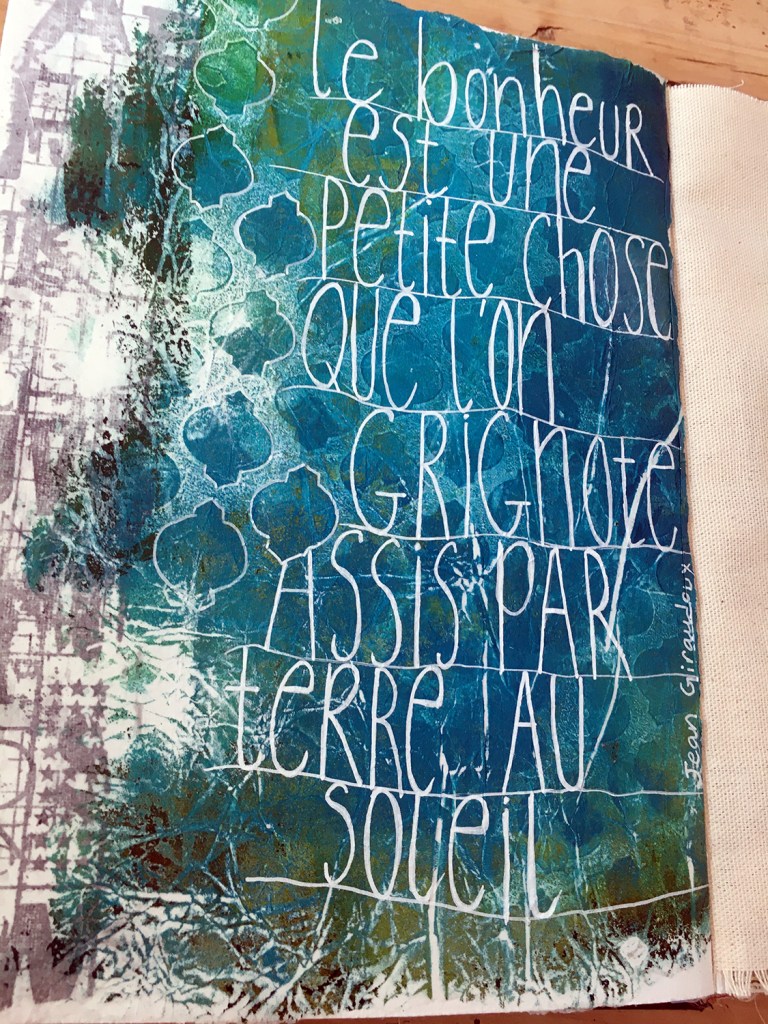 le bonheuR
est une
Petite chose
Que l'on
GRiGnote
ASSiS PAR
teRRe, AU
soleil
Jean Giraudoux